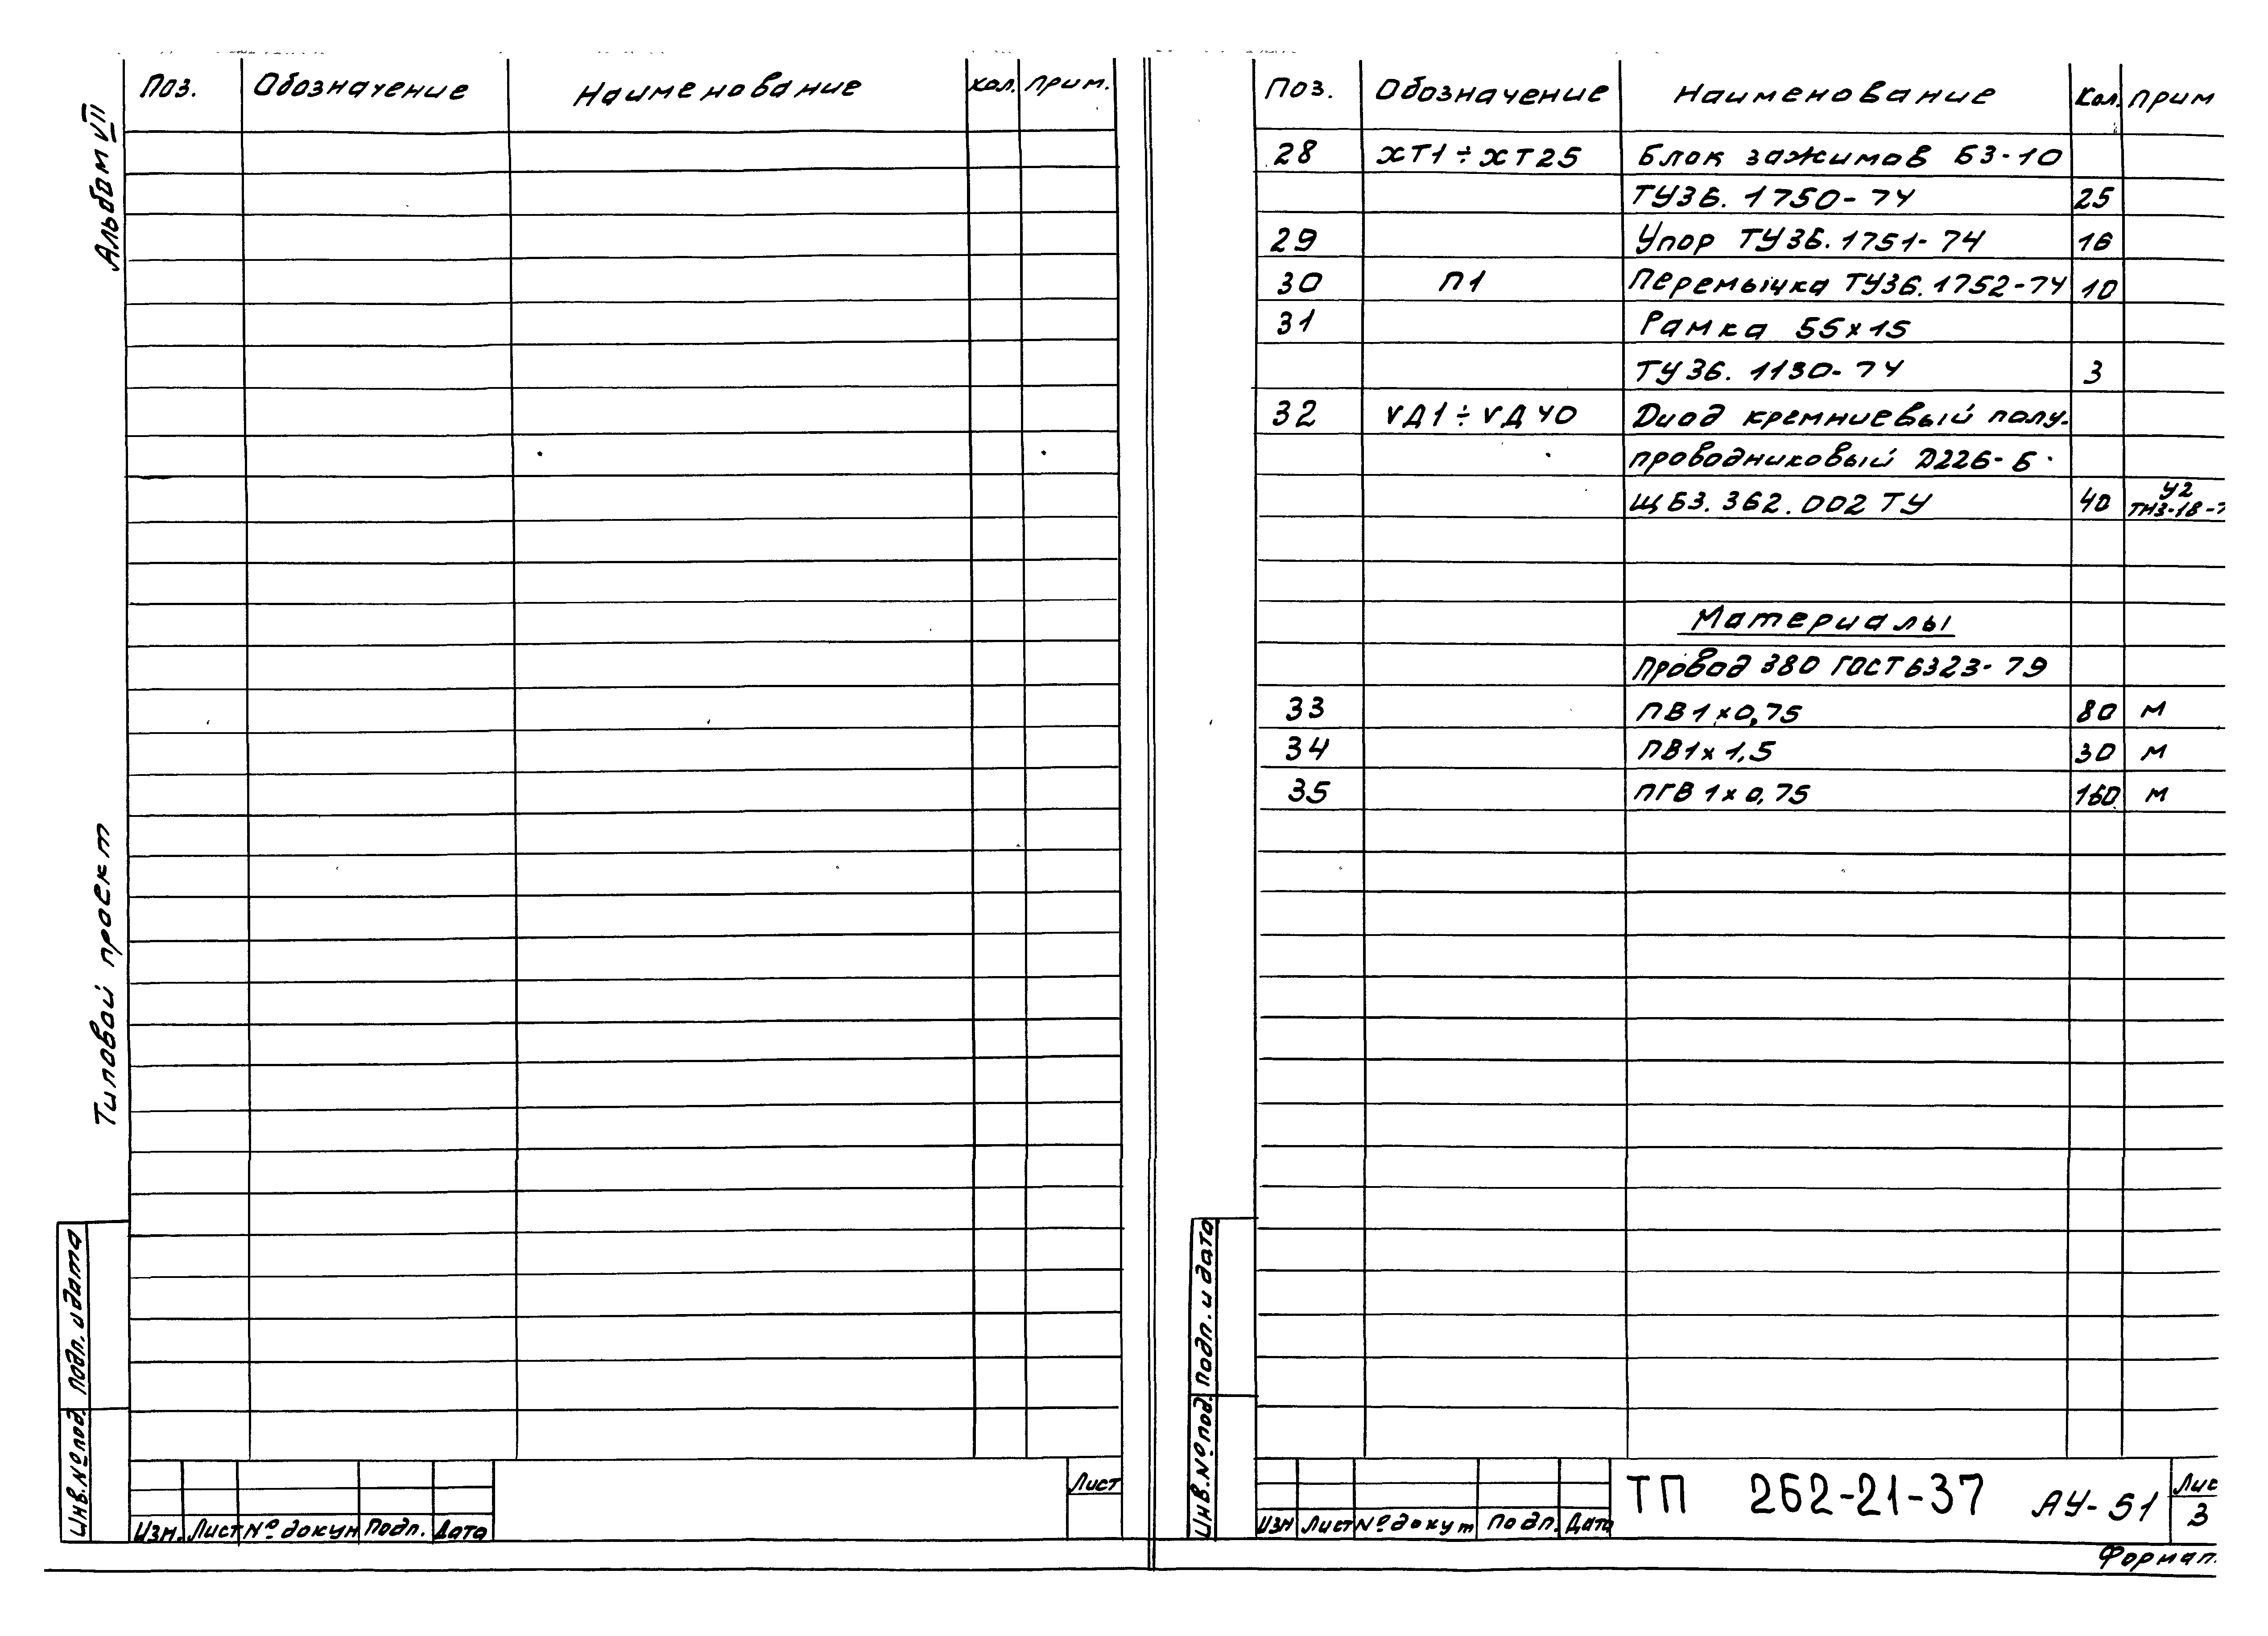 Альбом VII
Типовой проект
Поз. Обозначение Наименование Кол. Прим.
Подп. и дата
Инв. № под.
Изм. Лист № докум Подп. Дата
Лист
Поз. Обозначение Наименование Кол. Прим
28 ХТ1÷ХТ25 Блок зажимов БЗ-10
ТУ36.1750-74 25
29 Упор ТУ36.1751-74 16
30 П1 Перемычка ТУ36.1752-74 10
31 Рамка 55х15
ТУ36.1130-74 3
32 VД1÷VД40 Диод кремниевый полу-
проводниковый Д226-Б
ЩБ3.362.002 ТУ 40 У2
ТМ3-18-7
Материалы
Провод 380 ГОСТ 6323-79
33 ПВ1х0,75 80 м
34 ПВ1х1,5 30 м
35 ПГВ1х0,75 160 м
Подп. и дата
Инв. № под.
Изм Лист № докум Подп. Дата
ТП 262-21-37 АУ-51
Лис
3
Формат